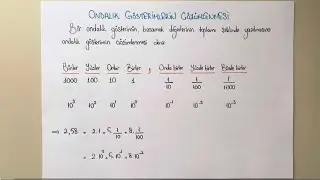 ONDALIK GÖSTERİMLERİN ÇÖZÜMLENMESİ
Bir ondalık gösterimin, basamak değerlerinin toplamı şeklinde yazılmasına
ondalık gösterimin çözümlenmesi denir.
Binler Yüzler Onlar Birler , Onda birler Yüzde birler Binde birler
1000 100 10 1 1/10 1/100 1/1000
10³ 10² 10¹ 10⁰ 10⁻¹ 10⁻² 10⁻³
⇒ 2,58 = 2.1 + 5.1/10 + 8.1/100
= 2.10⁰ + 5.10⁻¹ + 8.10⁻²